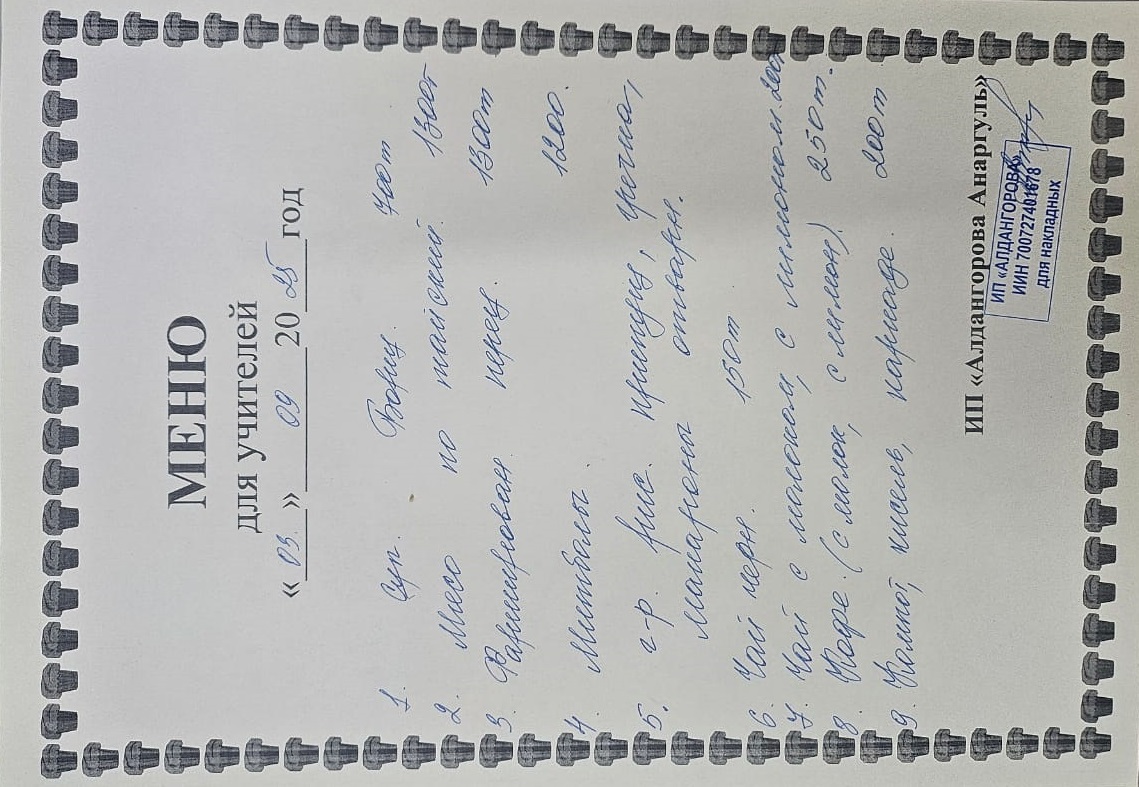 МЕНЮ
для учителей
« 03. » 09 20 25 год
1. Суп. Борщ. 700т
2. Мясо по тайский. 1300т
3. Фаршированн. перец. 1300т
4. Митболы. 1200.
5. г-р. рис. принтун, гречка,
макароны отварн.
6. Чай черн. 150т
7. Чай с молоком, с лимоном. 200т
8. Кофе. (с молок, с лимон). 250т.
9. Компот, кисель, каркаде. 200т
ИП «Алдангорова Анаргуль»
ИП «АЛДАНГОРОВА»
ИИН 700727401678
для накладных